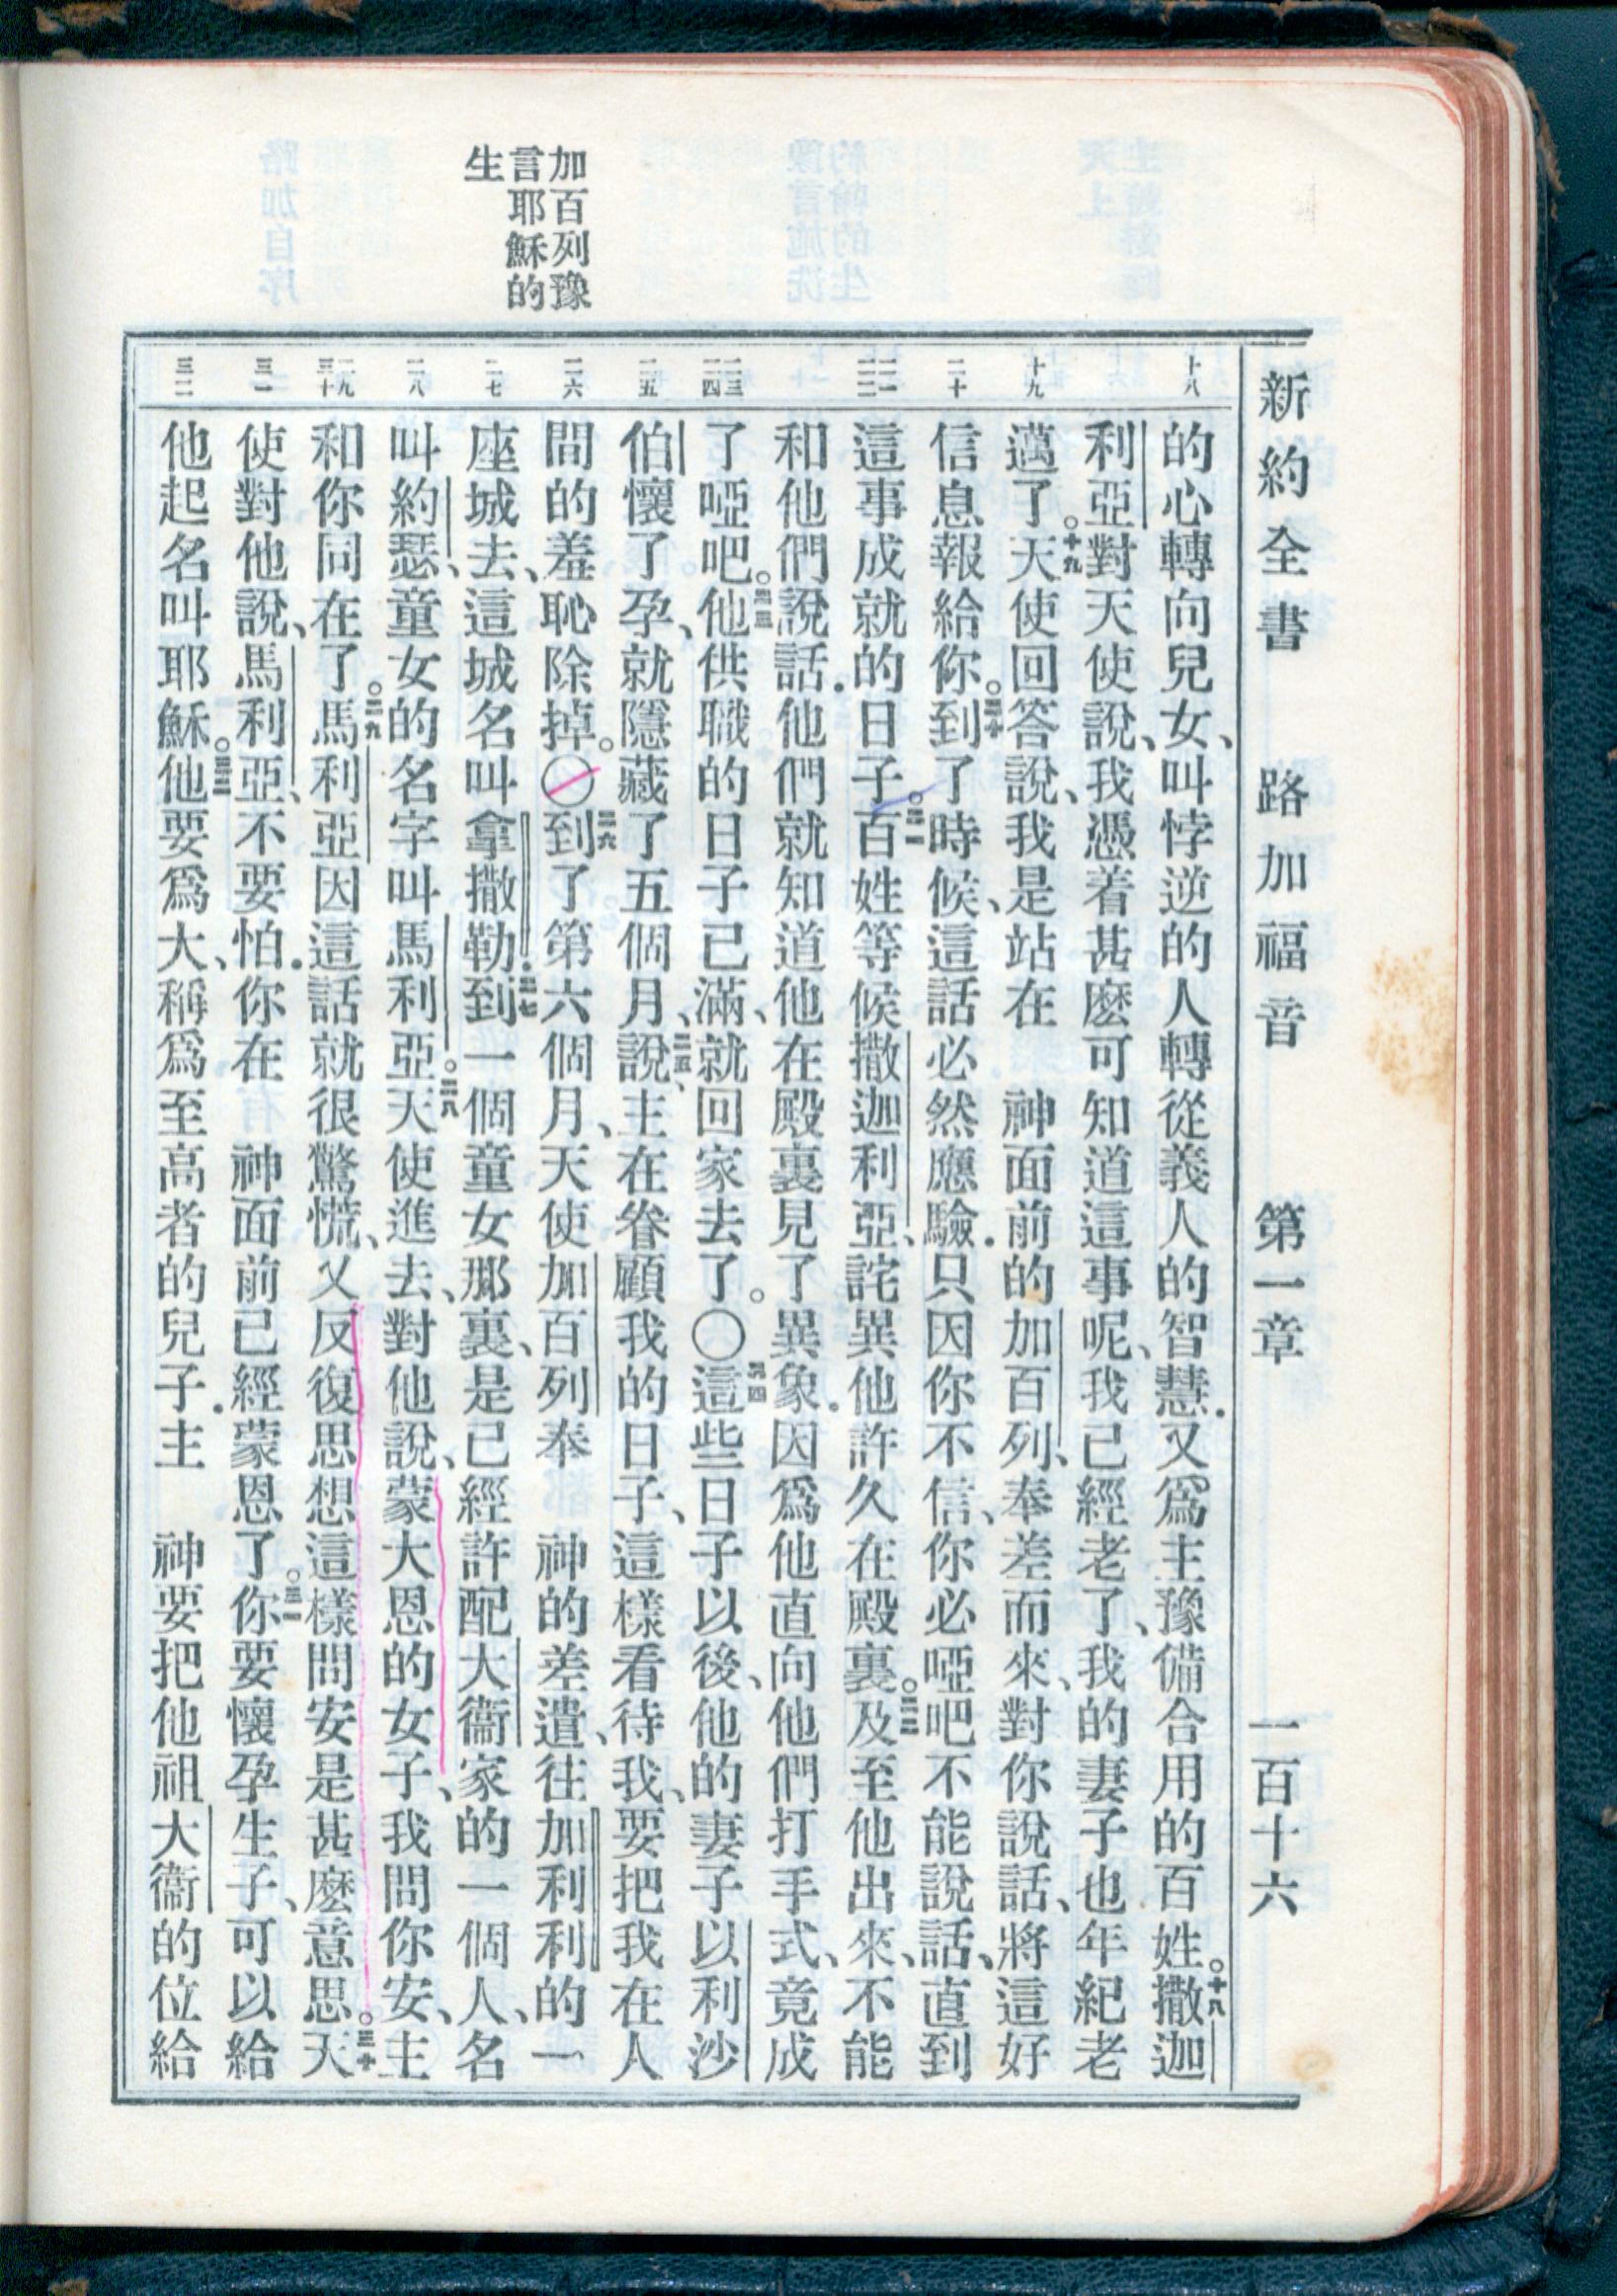 新約全書 路加福音 第一章 一百十六
加百列豫
言耶穌的
生
十八
十九
二十
二一
二二
二三
二四
二五
二六
二七
二八
二九
三十
三一
三二
的心轉向兒女、叫悖逆的人轉從義人的智慧．又爲主豫備合用的百姓。十八撒迦
利亞對天使說、我憑着甚麽可知道這事呢、我已經老了、我的妻子也年紀老
邁了。十九天使回答說、我是站在 神面前的加百列、奉差而來、對你說話、將這好
信息報給你。二十到了時候、這話必然應驗．只因你不信、你必啞吧不能說話、直到
這事成就的日子。二一百姓等候撒迦利亞、詫異他許久在殿裏。二二及至他出來、不能
和他們說話．他們就知道他在殿裏見了異象．因爲他直向他們打手式、竟成
了啞吧。二三他供職的日子已滿、就回家去了。〇二四這些日子以後、他的妻子以利沙
伯懷了孕、就隱藏了五個月、二五說、主在眷顧我的日子、這樣看待我、要把我在人
間的羞恥除掉。〇二六到了第六個月、天使加百列奉 神的差遣、往加利利的一
座城去、這城名叫拿撒勒．二七到一個童女那裏、是已經許配大衞家的一個人、名
叫約瑟、童女的名字叫馬利亞。二八天使進去、對他說、蒙大恩的女子、我問你安、主
和你同在了。二九馬利亞因這話就很驚慌、又反復思想這樣問安是甚麽意思。三十天
使對他說、馬利亞、不要怕．你在 神面前已經蒙恩了。三一你要懷孕生子、可以給
他起名叫耶穌。三二他要爲大、稱爲至高者的兒子．主 神要把他祖大衞的位給